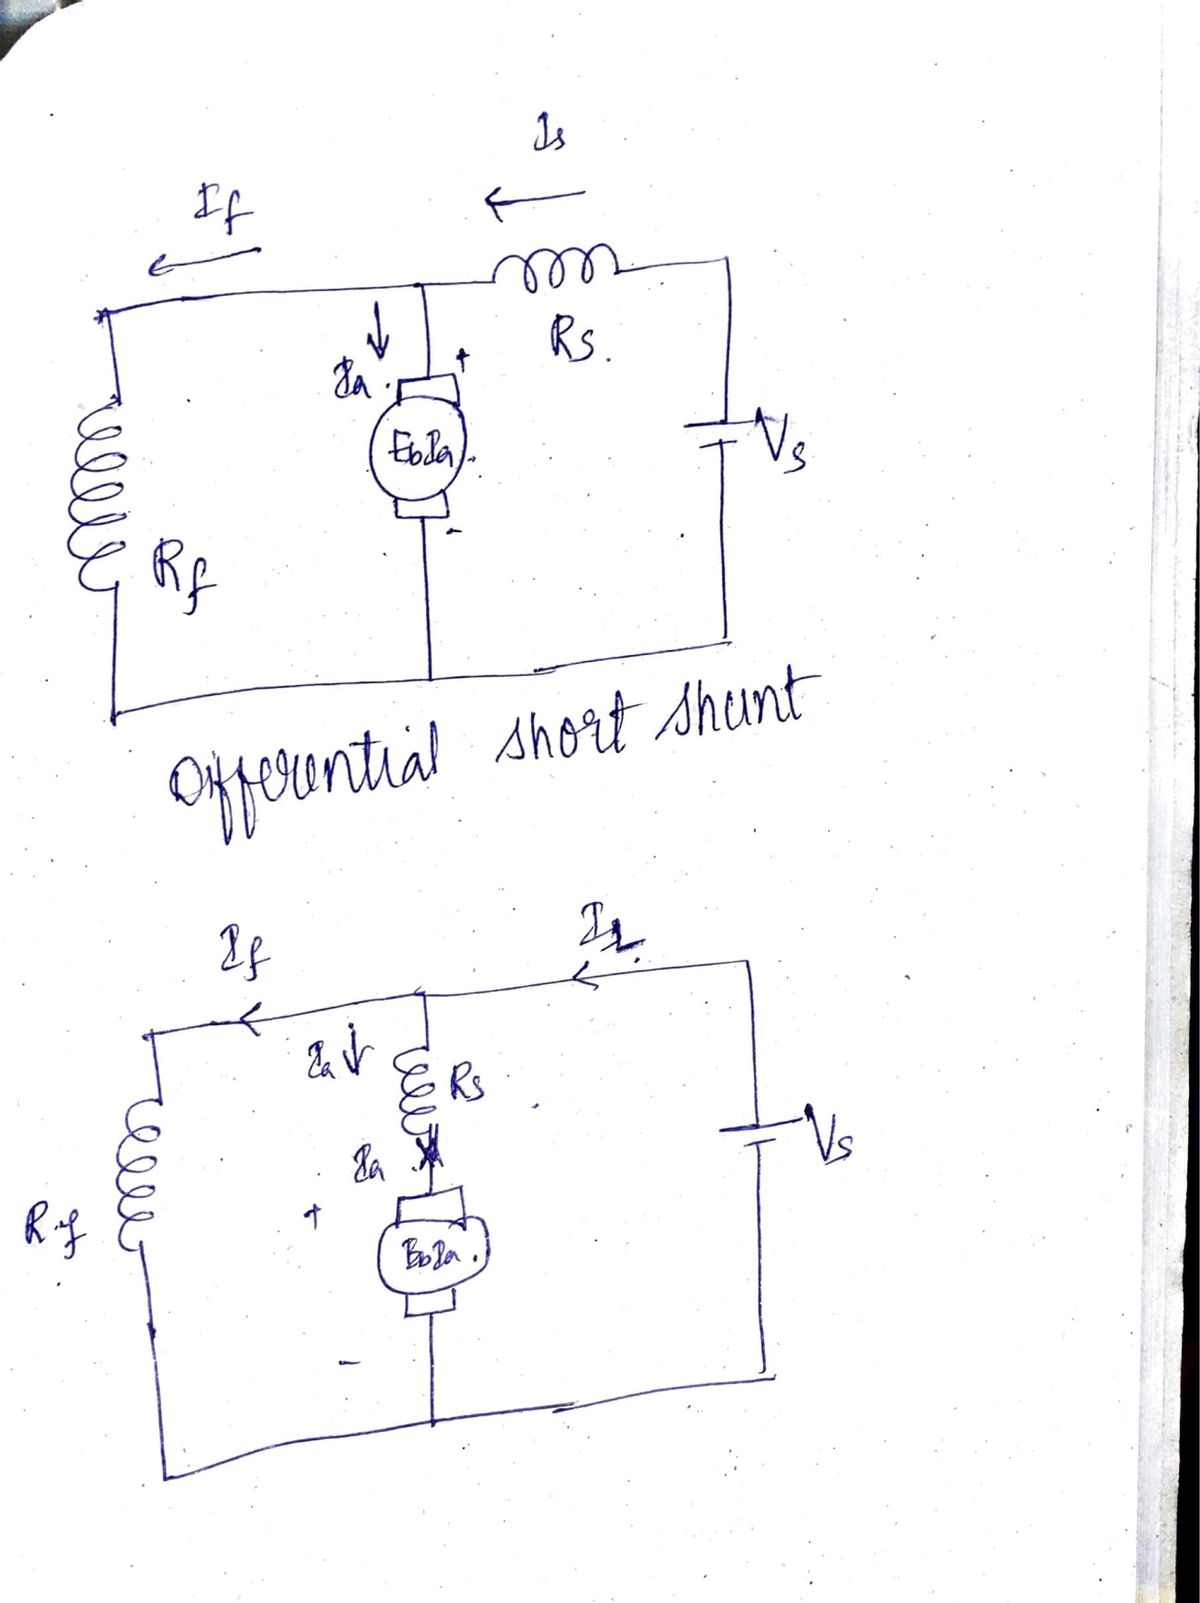 Is
If
Ia
+
Rs.
EbIa
Vs
-
Rf
Differential short shunt
If
IL
Ia
Rs
Ia
Vs
+
Rf
EbIa
-